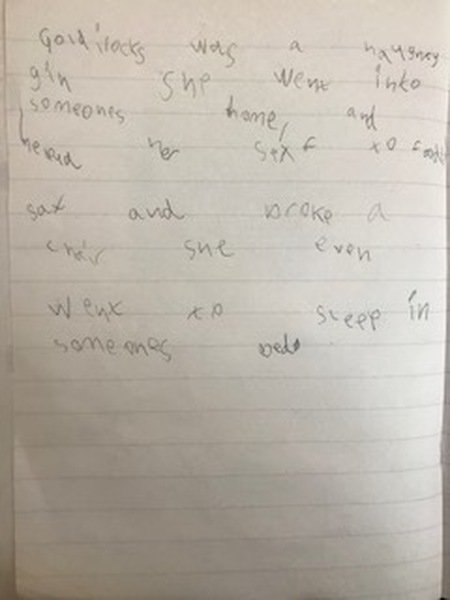 Goldilocks was a naughey
girl she went into
someones home, and
helped her self to food
sat and broke a
chair she even
went to sleep in
someones bed.